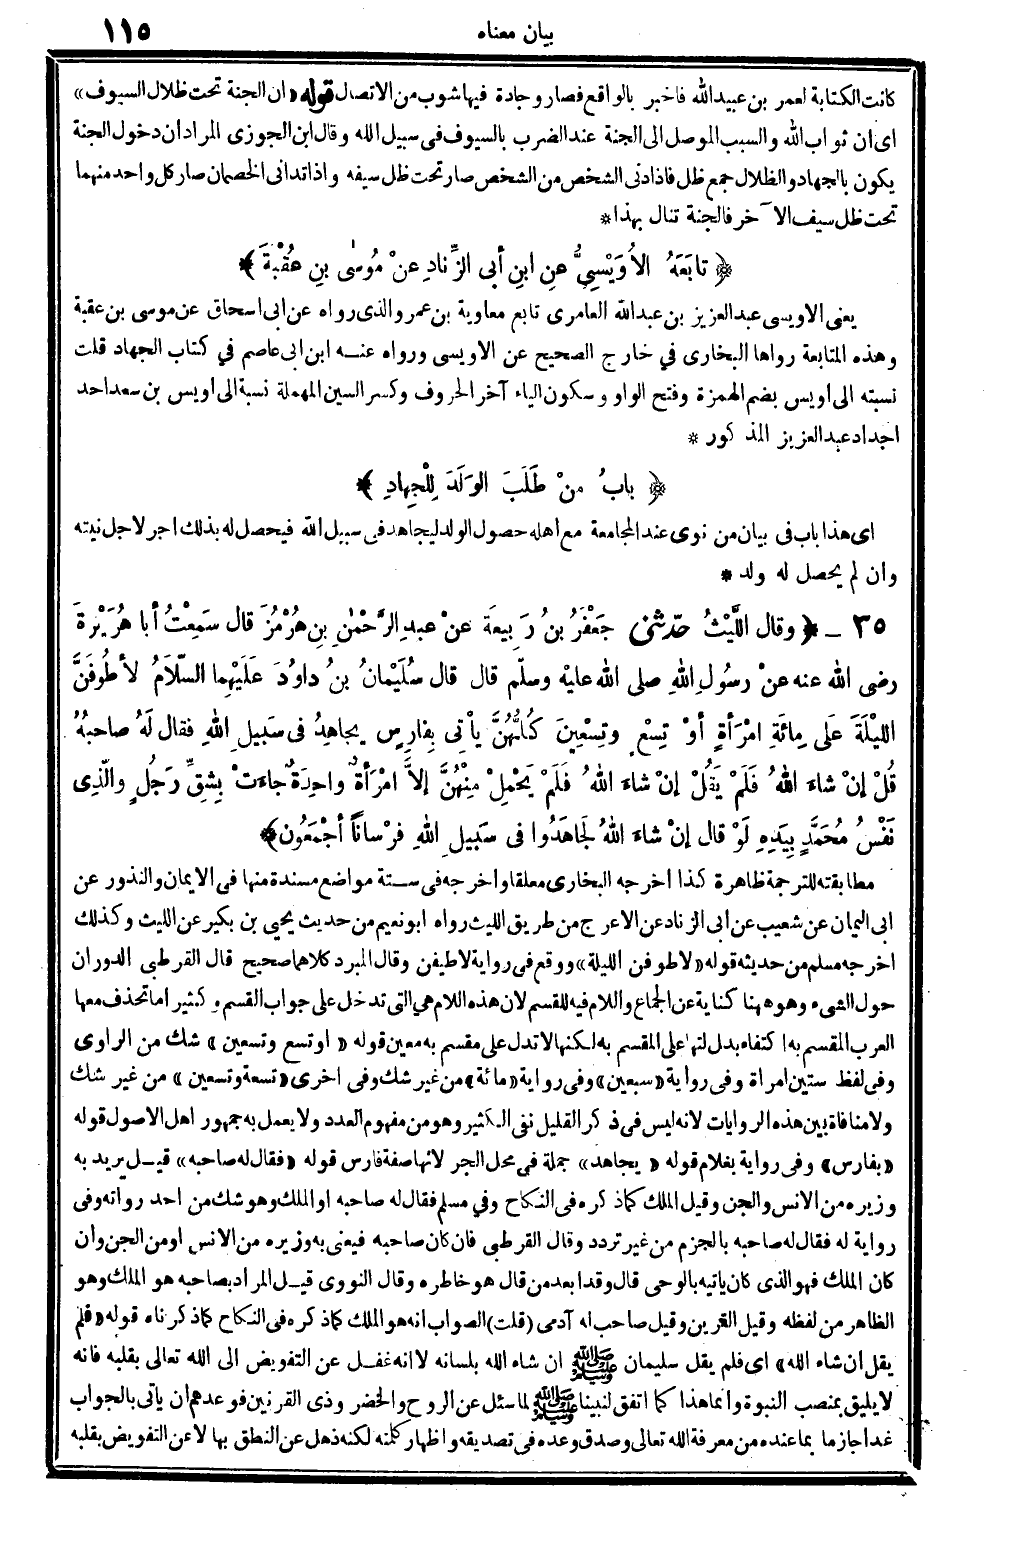 بيان معناه
١١٥
كانت الكتابة لعمر بن عبيد الله فاخبر بالواقع فصار وجادة فيها شوب من الاتصال قوله «ان الجنة تحت ظلال السيوف»
اى ان ثواب الله والسبب الموصل الى الجنة عند الضرب بالسيوف فى سبيل الله وقال ابن الجوزى المراد ان دخول الجنة
يكون بالجهاد والظلال جمع ظل فاذا دنى الشخص من الشخص صار تحت ظل سيفه واذا تدانى الخصمان صار كل واحد منهما
تحت ظل سيف الآخر فالجنة تنال بهذا *
﴿ تابَعَهُ الأُوَيْسِيُّ عنِ ابنِ أبى الزِّنادِ عنْ مُوسٰى بنِ عُقْبَةَ ﴾
يعنى الاويسى عبد العزيز بن عبد الله العامرى تابع معاوية بن عمرو الذى رواه عن ابى اسحاق عن موسى بن عقبة
وهذه المتابعة رواها البخارى في خارج الصحيح عن الاويسى ورواه عنه ابن ابى عاصم في كتاب الجهاد قلت
نسبته الى اويس بضم الهمزة وفتح الواو وسكون الياء آخر الحروف وكسر السين المهملة نسبة الى اويس بن سعد احد
اجداد عبد العزيز المذكور *
﴿ بابُ منْ طَلَبَ الوَلَدَ لِلْجِهادِ ﴾
اى هذا باب فى بيان من نوى عند المجامعة مع اهله حصول الولد ليجاهد فى سبيل الله فيحصل له بذلك اجر لاجل نيته
وان لم يحصل له ولد *
٣٥ ـ ﴿ وقال اللَّيْثُ حدّثنى جَعْفَرُ بنُ رَبِيعَةَ عنْ عبدِ الرَّحْمٰنِ بنِ هُرْمُزَ قال سَمِعْتُ أبا هُرَيْرَةَ
رضى الله عنه عنْ رسُولِ اللهِ صلى الله عليْه وسلّم قال قال سُلَيْمانُ بنُ داوُدَ عَلَيْهِما السَّلاَمُ لأطُوفَنَّ
اللَّيْلَةَ عَلَى مِائَةِ امْرَأةٍ أوْ تِسْعٍ وتِسْعِينَ كُلُّهُنَّ يأْتى بِفارِسٍ يجاهِدُ فى سَبِيلِ اللهِ فقال لَهُ صاحِبُهُ
قُلْ إنْ شاءَ اللهُ فَلَمْ يَقُلْ إنْ شاءَ اللهُ فَلَمْ يَحْمِلْ مِنْهُنَّ إلاَّ امْرَأةٌ واحِدَةٌ جاءَتْ بِشِقِّ رَجُلٍ والَّذِى
نَفْسُ مُحَمَّدٍ بِيَدِهِ لَوْ قال إنْ شاءَ اللهُ لَجاهَدُوا فى سَبِيلِ اللهِ فُرْساناً أجْمَعُون ﴾
مطابقته للترجمة ظاهرة كذا اخرجه البخارى معلقا واخرجه فى ستة مواضع مسندة منها فى الايمان والنذور عن
ابى اليمان عن شعيب عن ابى الزناد عن الاعرج من طريق الليث رواه ابو نعيم من حديث يحيى بن بكير عن الليث وكذلك
اخرجه مسلم من حديثه قوله «لاطوفن الليلة» ووقع فى رواية لاطيفن وقال المبرد كلاهما صحيح قال القرطبى الدوران
حول الشىء وهو ههنا كناية عن الجماع واللام فيه للقسم لان هذه اللام هي التى تدخل على جواب القسم وكثيرا ما تحذف معها
العرب المقسم به اكتفاء بدلالتها على المقسم به لكنها لا تدل على مقسم به معين قوله «او تسع وتسعين» شك من الراوى
وفى لفظ ستين امراة وفى رواية «سبعين» وفى رواية «مائة» من غير شك وفى اخرى «تسعة وتسعين» من غير شك
ولا منافاة بين هذه الروايات لانه ليس فى ذكر القليل نفى الكثير وهو من مفهوم العدد ولا يعمل به جمهور اهل الاصول قوله
«بفارس» وفى رواية بغلام قوله «يجاهد» جملة في محل الجر لانها صفة فارس قوله «فقال له صاحبه» قيل يريد به
وزيره من الانس والجن وقيل الملك كما ذكره فى النكاح وفي مسلم فقال له صاحبه او الملك وهو شك من احد رواته وفى
رواية له فقال له صاحبه بالجزم من غير تردد وقال القرطبى فان كان صاحبه فيعنى به وزيره من الانس او من الجن وان
كان الملك فهو الذى كان ياتيه بالوحى قال وقد ابعد من قال هو خاطره وقال النووى قيل المراد بصاحبه هو الملك وهو
الظاهر من لفظه وقيل القرين وقيل صاحب له آدمى (قلت) الصواب انه هو الملك كما ذكره فى النكاح كما ذكرناه قوله «فلم
يقل ان شاء الله» اى فلم يقل سليمان ﷺ ان شاء الله بلسانه لا انه غفل عن التفويض الى الله تعالى بقلبه فانه
لا يليق بمنصب النبوة وانما هذا كما اتفق لنبينا ﷺ لما سئل عن الروح والخضر وذى القرنين فوعدهم ان ياتى بالجواب
غدا جازما بما عنده من معرفة الله تعالى وصدق وعده فى تصديقه واظهار كلمته لكنه ذهل عن النطق بها لا عن التفويض بقلبه